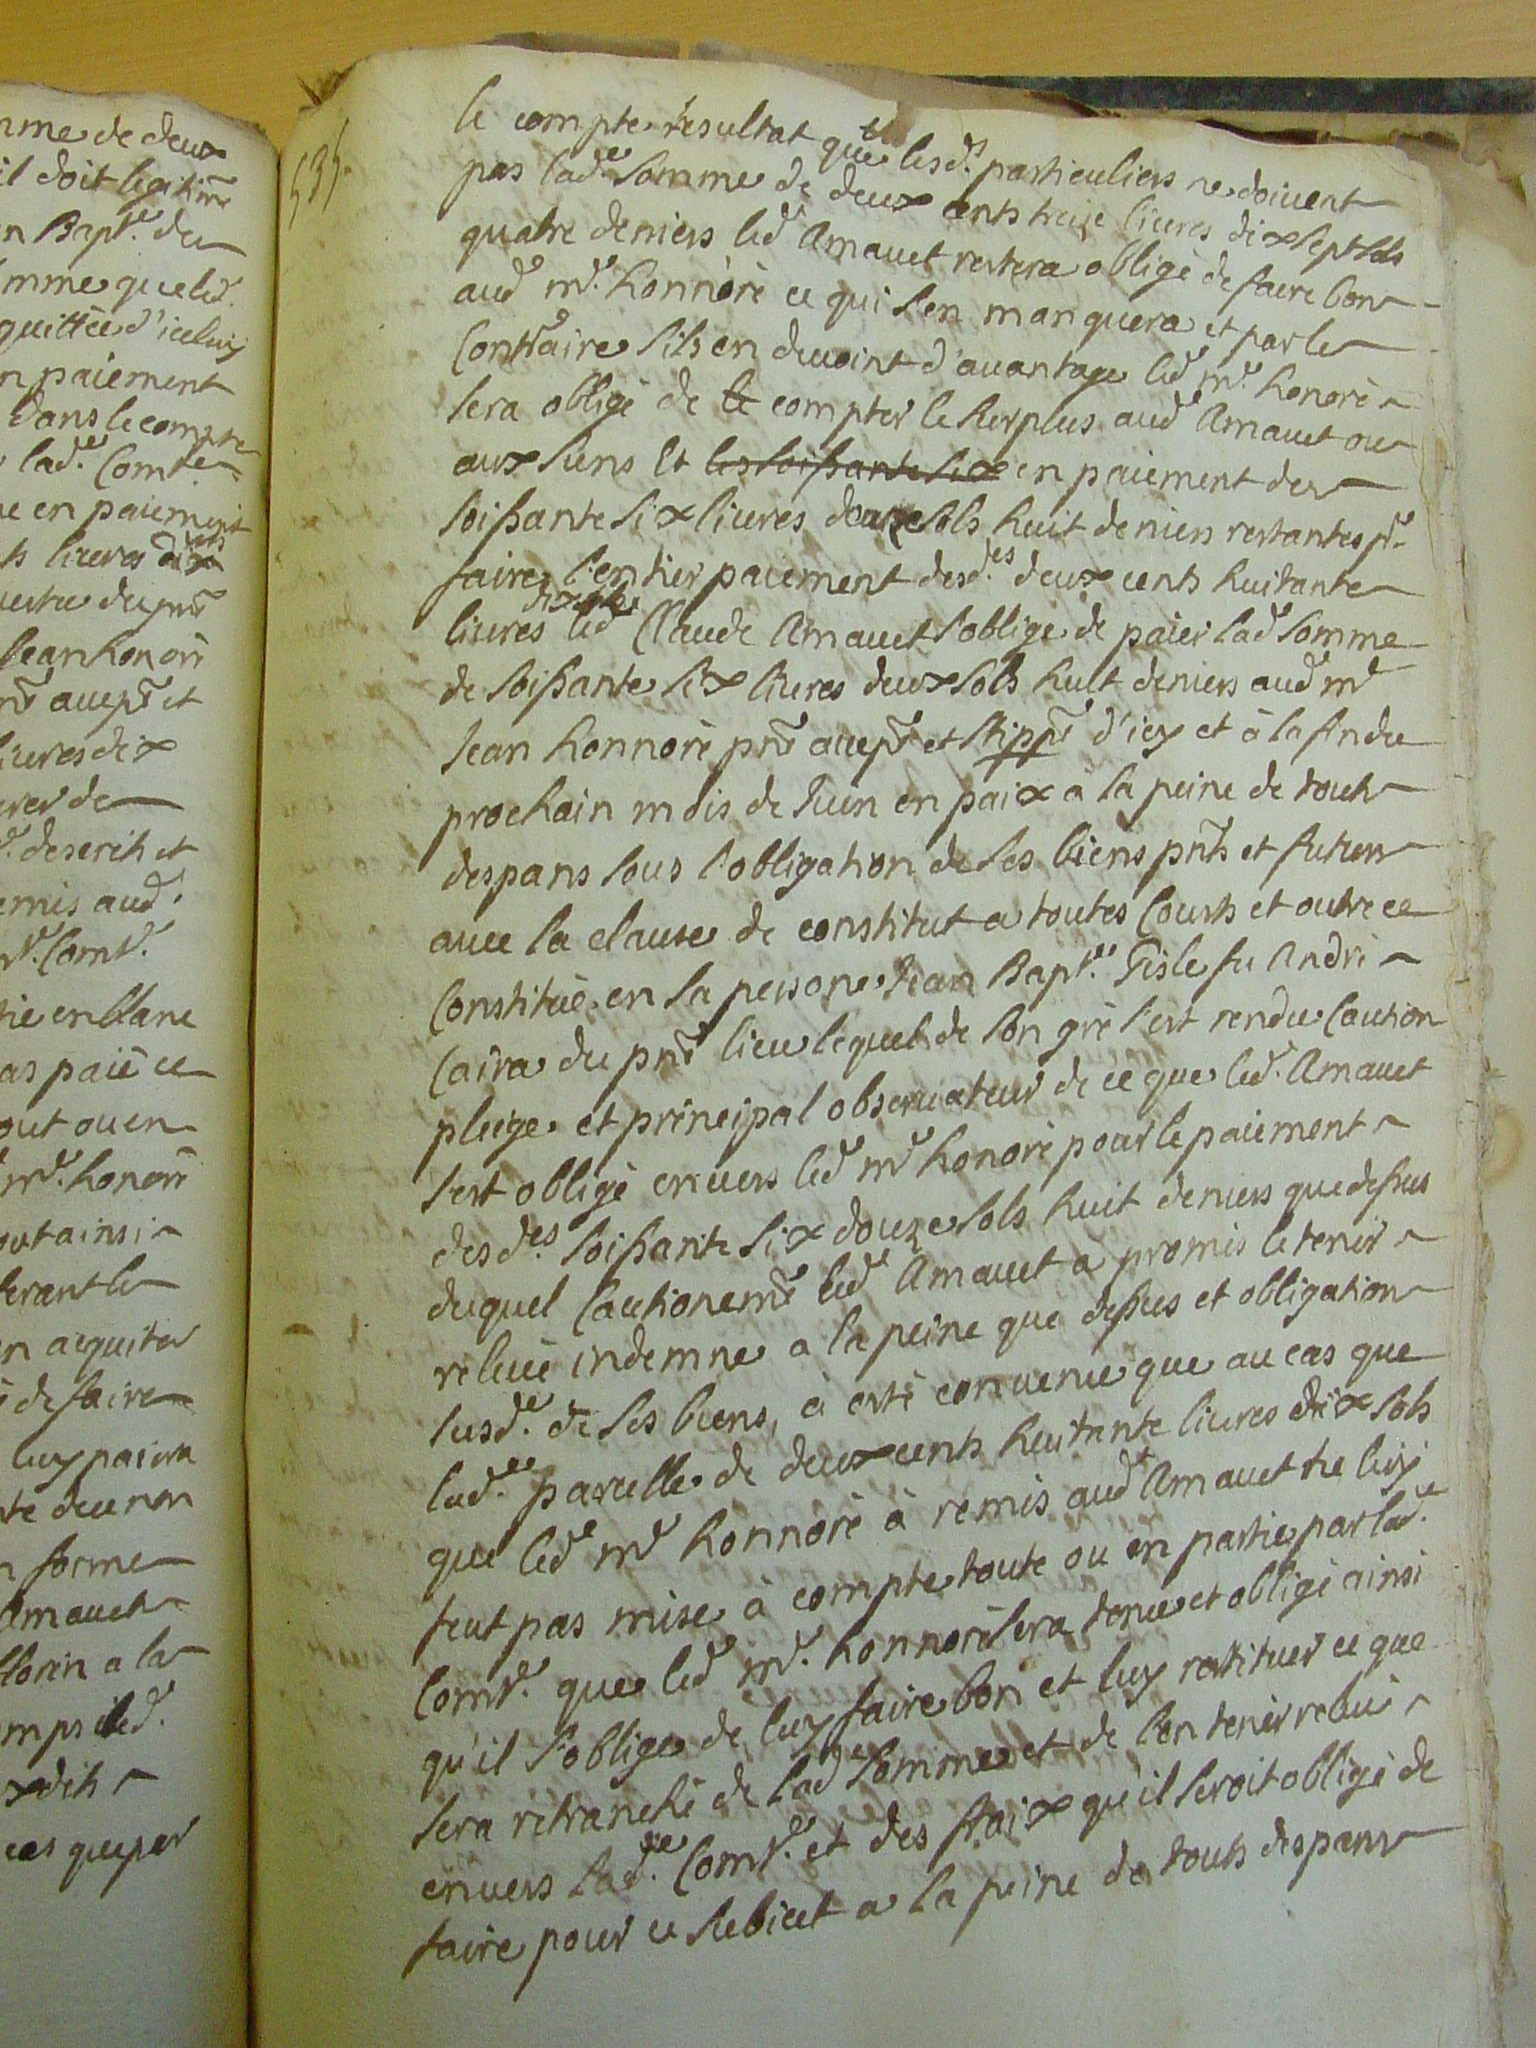 mme de deux
il doit legitimt
n Bapte. de
mme que led.
quittée d'iceluy
n paiement
dans le compte
lade. Comte.
ue en paiement
ts livres dix sols
du pnt
Jean honoré
nt accept et
livres dix
de
d. descrih et
emis aud.
md. Comté.
rie en blanc
as paié ce
out ou en
md. honoré
out ainsi
erant le
n acquiter
é de faire
luy paiera
te de ce non
n forme
Amavet
florin a la
mps led.
x dih
ces que par
535.
le compte résultat que lesds. particuliers ne doivent
pas lade. somme de deux cents treize livres dix sept sols
quatre deniers led Amavet restera obligé de faire bon
aud md. honnoré ce qui s'en manquera et par le
Contraire s'ils en devoint d'avantage led md. honoré
sera obligé de le compter le surplus aud Amavet ou
aux siens Et les soissante six en paiement des
soissante six livres douze sols huit deniers restantes pr
faire l'entier paiement desdes. deux cents huitante
dix sols
livres led Claude Amavet s'oblige de paier lad somme
de soissante six livres deux sols huit deniers aud md
Jean honnoré pnt accept et stippt d'icy et à la fin du
prochain mois de Juin en paix à la peine de touts
despans sous l'obligation de ses biens pnts et futurs
avec la clause de constitut a toutes Courts et outre ce
Constitué en sa persone Jean Bapte. Gisle fu André
Caira du pnt lieu lequel de son gré s'est rendu Caution
pleige et principal observateur de ce que led. Amavet
s'est obligé envers led md honoré pour le paiement
desdes. soissante six douze sols huit deniers que dessus
duquel Cautionemt led Amavet a promis le tenir
relevé indemne a la peine que dessus et obligation
susde. de ses biens, à esté convenu que au cas que
lade. parcelle de deux cents huitante livres dix sols
que led md honnoré à remis aud Amavet ne luy
feut pas mise à compte toute ou en partie par lade.
Comté. que led md. honnoré sera tenu et obligé ainsi
qu'il s'oblige de luy faire bon et luy restituer ce que
sera retranché de lad somme et de l'en tenir relevé
envers lade. Comté. et des fraix qu'il seroit obligé de
faire pour ce subiect a la peine de touts despans